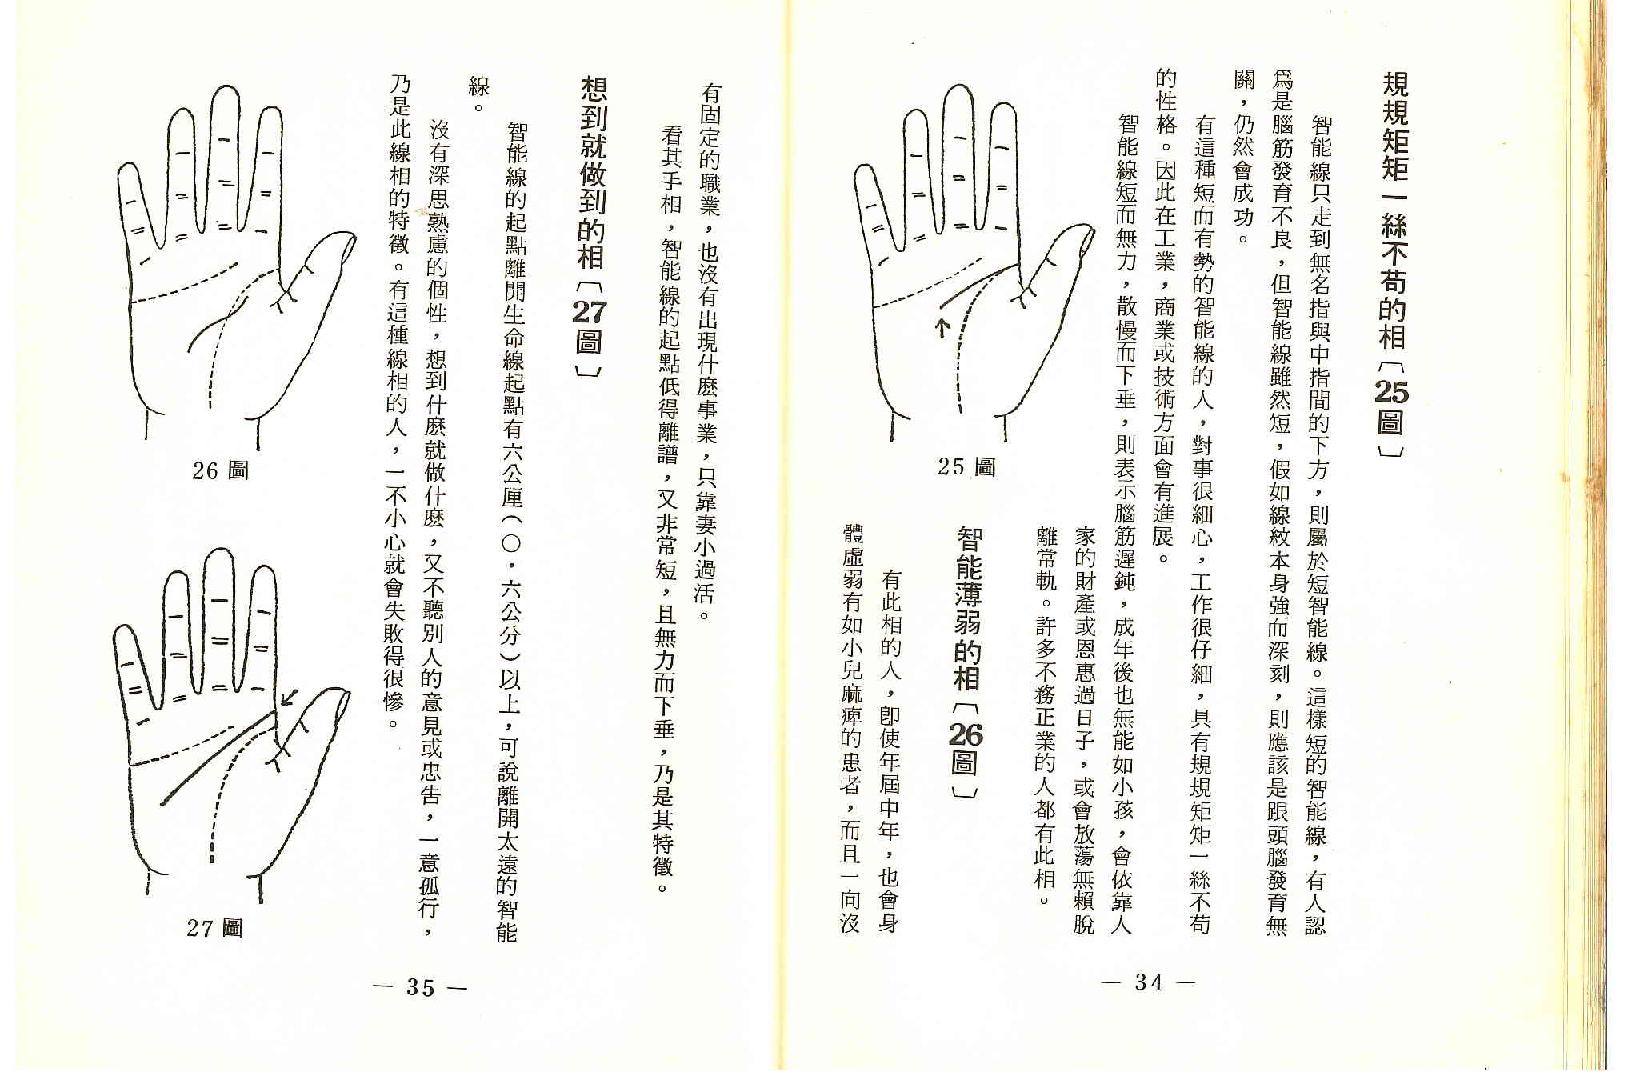 規規矩矩一絲不苟的相〔25圖〕
智能線只走到無名指與中指間的下方，則屬於短智能線。這樣短的智能線，有人認
爲是腦筋發育不良，但智能線雖然短，假如線紋本身強而深刻，則應該是跟頭腦發育無
關，仍然會成功。
有這種短而有勢的智能線的人，對事很細心，工作很仔細，具有規規矩矩一絲不苟
的性格。因此在工業，商業或技術方面會有進展。
智能線短而無力，散慢而下垂，則表示腦筋遲鈍，成年後也無能如小孩，會依靠人
家的財產或恩惠過日子，或會放蕩無賴脫
離常軌。許多不務正業的人都有此相。
25 圖
智能薄弱的相〔26圖〕
有此相的人，卽使年屆中年，也會身
體虛弱有如小兒麻痺的患者，而且一向沒
— 34 —
有固定的職業，也沒有出現什麽事業，只靠妻小過活。
看其手相，智能線的起點低得離譜，又非常短，且無力而下垂，乃是其特徵。
想到就做到的相〔27圖〕
智能線的起點離開生命線起點有六公厘（〇．六公分）以上，可說離開太遠的智能
線。
沒有深思熟慮的個性，想到什麽就做什麽，又不聽別人的意見或忠告，一意孤行，
乃是此線相的特徵。有這種線相的人，一不小心就會失敗得很慘。
26 圖
27 圖
— 35 —